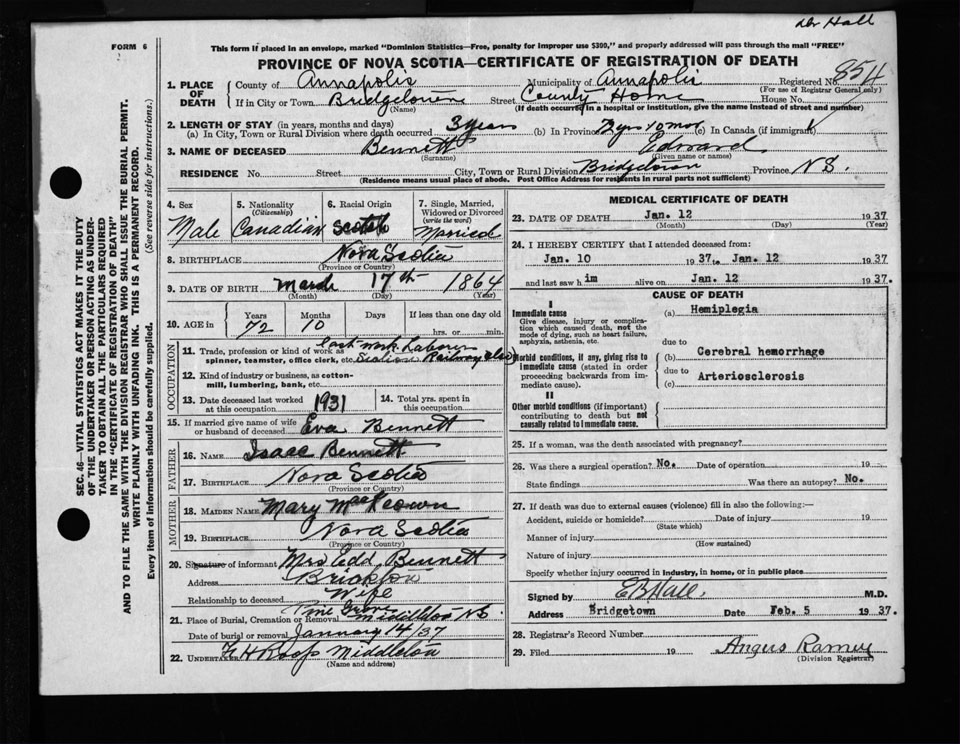 Dr Hall
FORM 6
This form if placed in an envelope, marked "Dominion Statistics—Free, penalty for improper use $300," and properly addressed will pass through the mail "FREE"
PROVINCE OF NOVA SCOTIA—CERTIFICATE OF REGISTRATION OF DEATH
1. PLACE OF DEATH County of Annapolis Municipality of Annapolis Registered No. 854
(For use of Registrar General only)
If in City or Town Bridgetown Street County Home House No.
(Name) (If death occurred in a hospital or institution, give the name instead of street and number)
2. LENGTH OF STAY (in years, months and days)
(a) In City, Town or Rural Division where death occurred 3 years (b) In Province 72 yrs 10 mos (c) In Canada (if immigrant)
3. NAME OF DECEASED Bennett Edward
(Surname) (Given name or names)
RESIDENCE No. Street City, Town or Rural Division Bridgetown Province N S.
(Residence means usual place of abode. Post Office Address for residents in rural parts not sufficient)
4. Sex 5. Nationality (Citizenship) 6. Racial Origin 7. Single, Married, Widowed or Divorced (write the word)
Male Canadian Scotch Married
8. BIRTHPLACE Nova Scotia
(Province or Country)
9. DATE OF BIRTH March 17th 1864
(Month) (Day) (Year)
10. AGE in Years Months Days If less than one day old
72 10 hrs. or min.
OCCUPATION
11. Trade, profession or kind of work as spinner, teamster, office clerk, etc. Last work Laborer Section Railway also
12. Kind of industry or business, as cotton-mill, lumbering, bank, etc.
13. Date deceased last worked at this occupation 1931 14. Total yrs. spent in this occupation
15. If married give name of wife or husband of deceased Eva Bennett
FATHER
16. NAME Isaac Bennett
17. BIRTHPLACE Nova Scotia
(Province or Country)
MOTHER
18. MAIDEN NAME Mary MacKeown
19. BIRTHPLACE Nova Scotia
(Province or Country)
20. Signature of informant Mrs Edd Bennett
Address Brickton
Relationship to deceased Wife
21. Place of Burial, Cremation or Removal Pine Grove Middleton NS
Date of burial or removal January 14/37
22. UNDERTAKER Middleton
(Name and address)
MEDICAL CERTIFICATE OF DEATH
23. DATE OF DEATH Jan. 12 1937
(Month) (Day) (Year)
24. I HEREBY CERTIFY that I attended deceased from:
Jan. 10 1937. to Jan. 12 1937
and last saw him alive on Jan. 12 1937.
CAUSE OF DEATH
I
Immediate cause (a) Hemiplegia
Give disease, injury or complication which caused death, not the mode of dying, such as heart failure, asphyxia, asthenia, etc.
due to
Morbid conditions, if any, giving rise to immediate cause (stated in order proceeding backwards from immediate cause). (b) Cerebral hemorrhage
due to
(c) Arteriosclerosis
II
Other morbid conditions (if important) contributing to death but not causally related to immediate cause.
25. If a woman, was the death associated with pregnancy?
26. Was there a surgical operation? No. Date of operation 19
State findings Was there an autopsy? No.
27. If death was due to external causes (violence) fill in also the following:—
Accident, suicide or homicide? Date of injury 19
(State which)
Manner of injury
(How sustained)
Nature of injury
Specify whether injury occurred in Industry, in home, or in public place
Signed by E B Hall. M.D.
Address Bridgetown Date Feb. 5 1937.
28. Registrar's Record Number
29. Filed 19 Angus Ramey
(Division Registrar)
SEC. 46—VITAL STATISTICS ACT MAKES IT THE DUTY
OF THE UNDERTAKER OR PERSON ACTING AS UNDER-
TAKER TO OBTAIN ALL THE PARTICULARS REQUIRED
IN THE "CERTIFICATE OF REGISTRATION OF DEATH"
AND TO FILE THE SAME WITH THE DIVISION REGISTRAR WHO SHALL ISSUE THE BURIAL PERMIT.
WRITE PLAINLY WITH UNFADING INK. THIS IS A PERMANENT RECORD.
Every item of information should be carefully supplied. (See reverse side for instructions.)